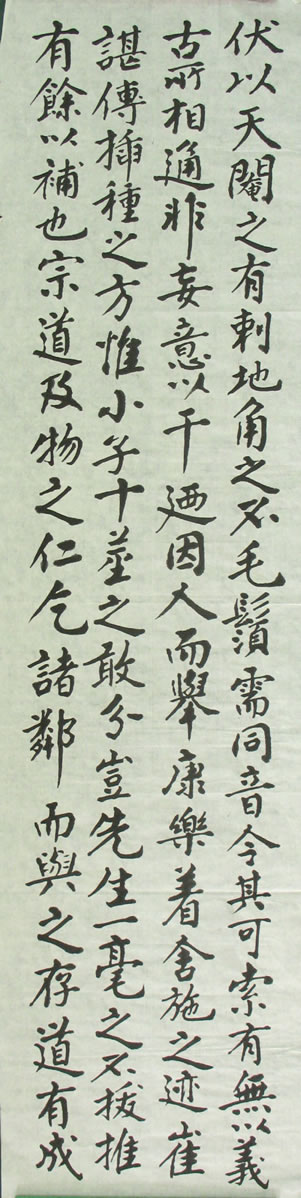 伏以天閹之有刺地角之不毛鬚需同音今其可索有無以義
古所相通非妄意以干廼因人而舉康樂着舍施之迹崔
諶傳插種之方惟小子十莖之敢分豈先生一毫之不拔推
有餘以補也宗道及物之仁乞諸鄰而與之存道有成